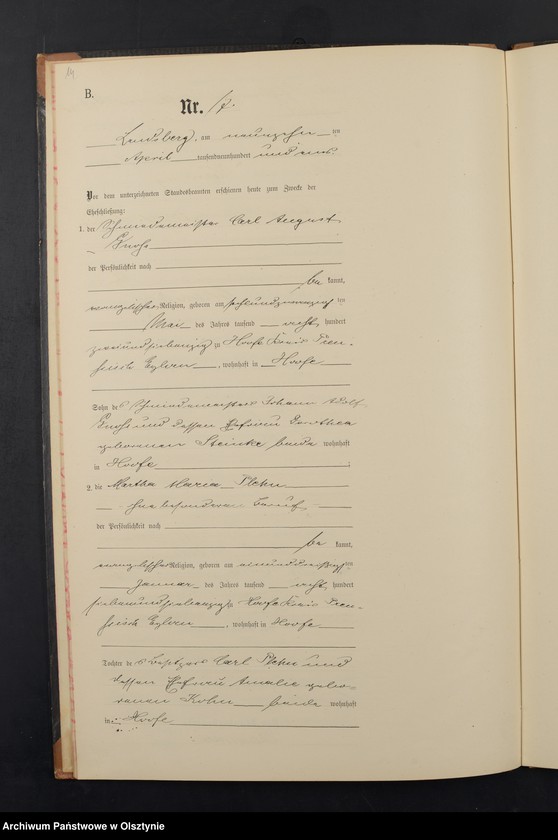 14
B.
Nr. 17.
Landsberg, am neunzehn ten
April tausendneunhundert und eins.
Vor dem unterzeichneten Standesbeamten erschienen heute zum Zwecke der
Eheschließung:
1. der Schmiedemeister Carl August
der Persönlichkeit nach
be kannt,
evangelischer Religion, geboren am sechsundzwanzig ten
Mai des Jahres tausend acht hundert
zweiundsiebenzig zu Hoofe Kreis Preu-
ssisch Eylau, wohnhaft in Hoofe
Sohn des Schmiedemeisters Johann Adolf
und dessen Ehefrau Dorothea
geborenen Steinke beide wohnhaft
in Hoofe
2. die Martha Maria Plehn
ohne besonderen Beruf
der Persönlichkeit nach
be kannt,
evangelischer Religion, geboren am einunddreißig ten
Januar des Jahres tausend acht hundert
siebenundsiebenzig zu Hoofe Kreis Preu-
ssisch Eylau, wohnhaft in Hoofe
Tochter des Besitzers Carl Plehn und
dessen Ehefrau Amalie gebo-
renen Kohn beide wohnhaft
in Hoofe
Archiwum Państwowe w Olsztynie